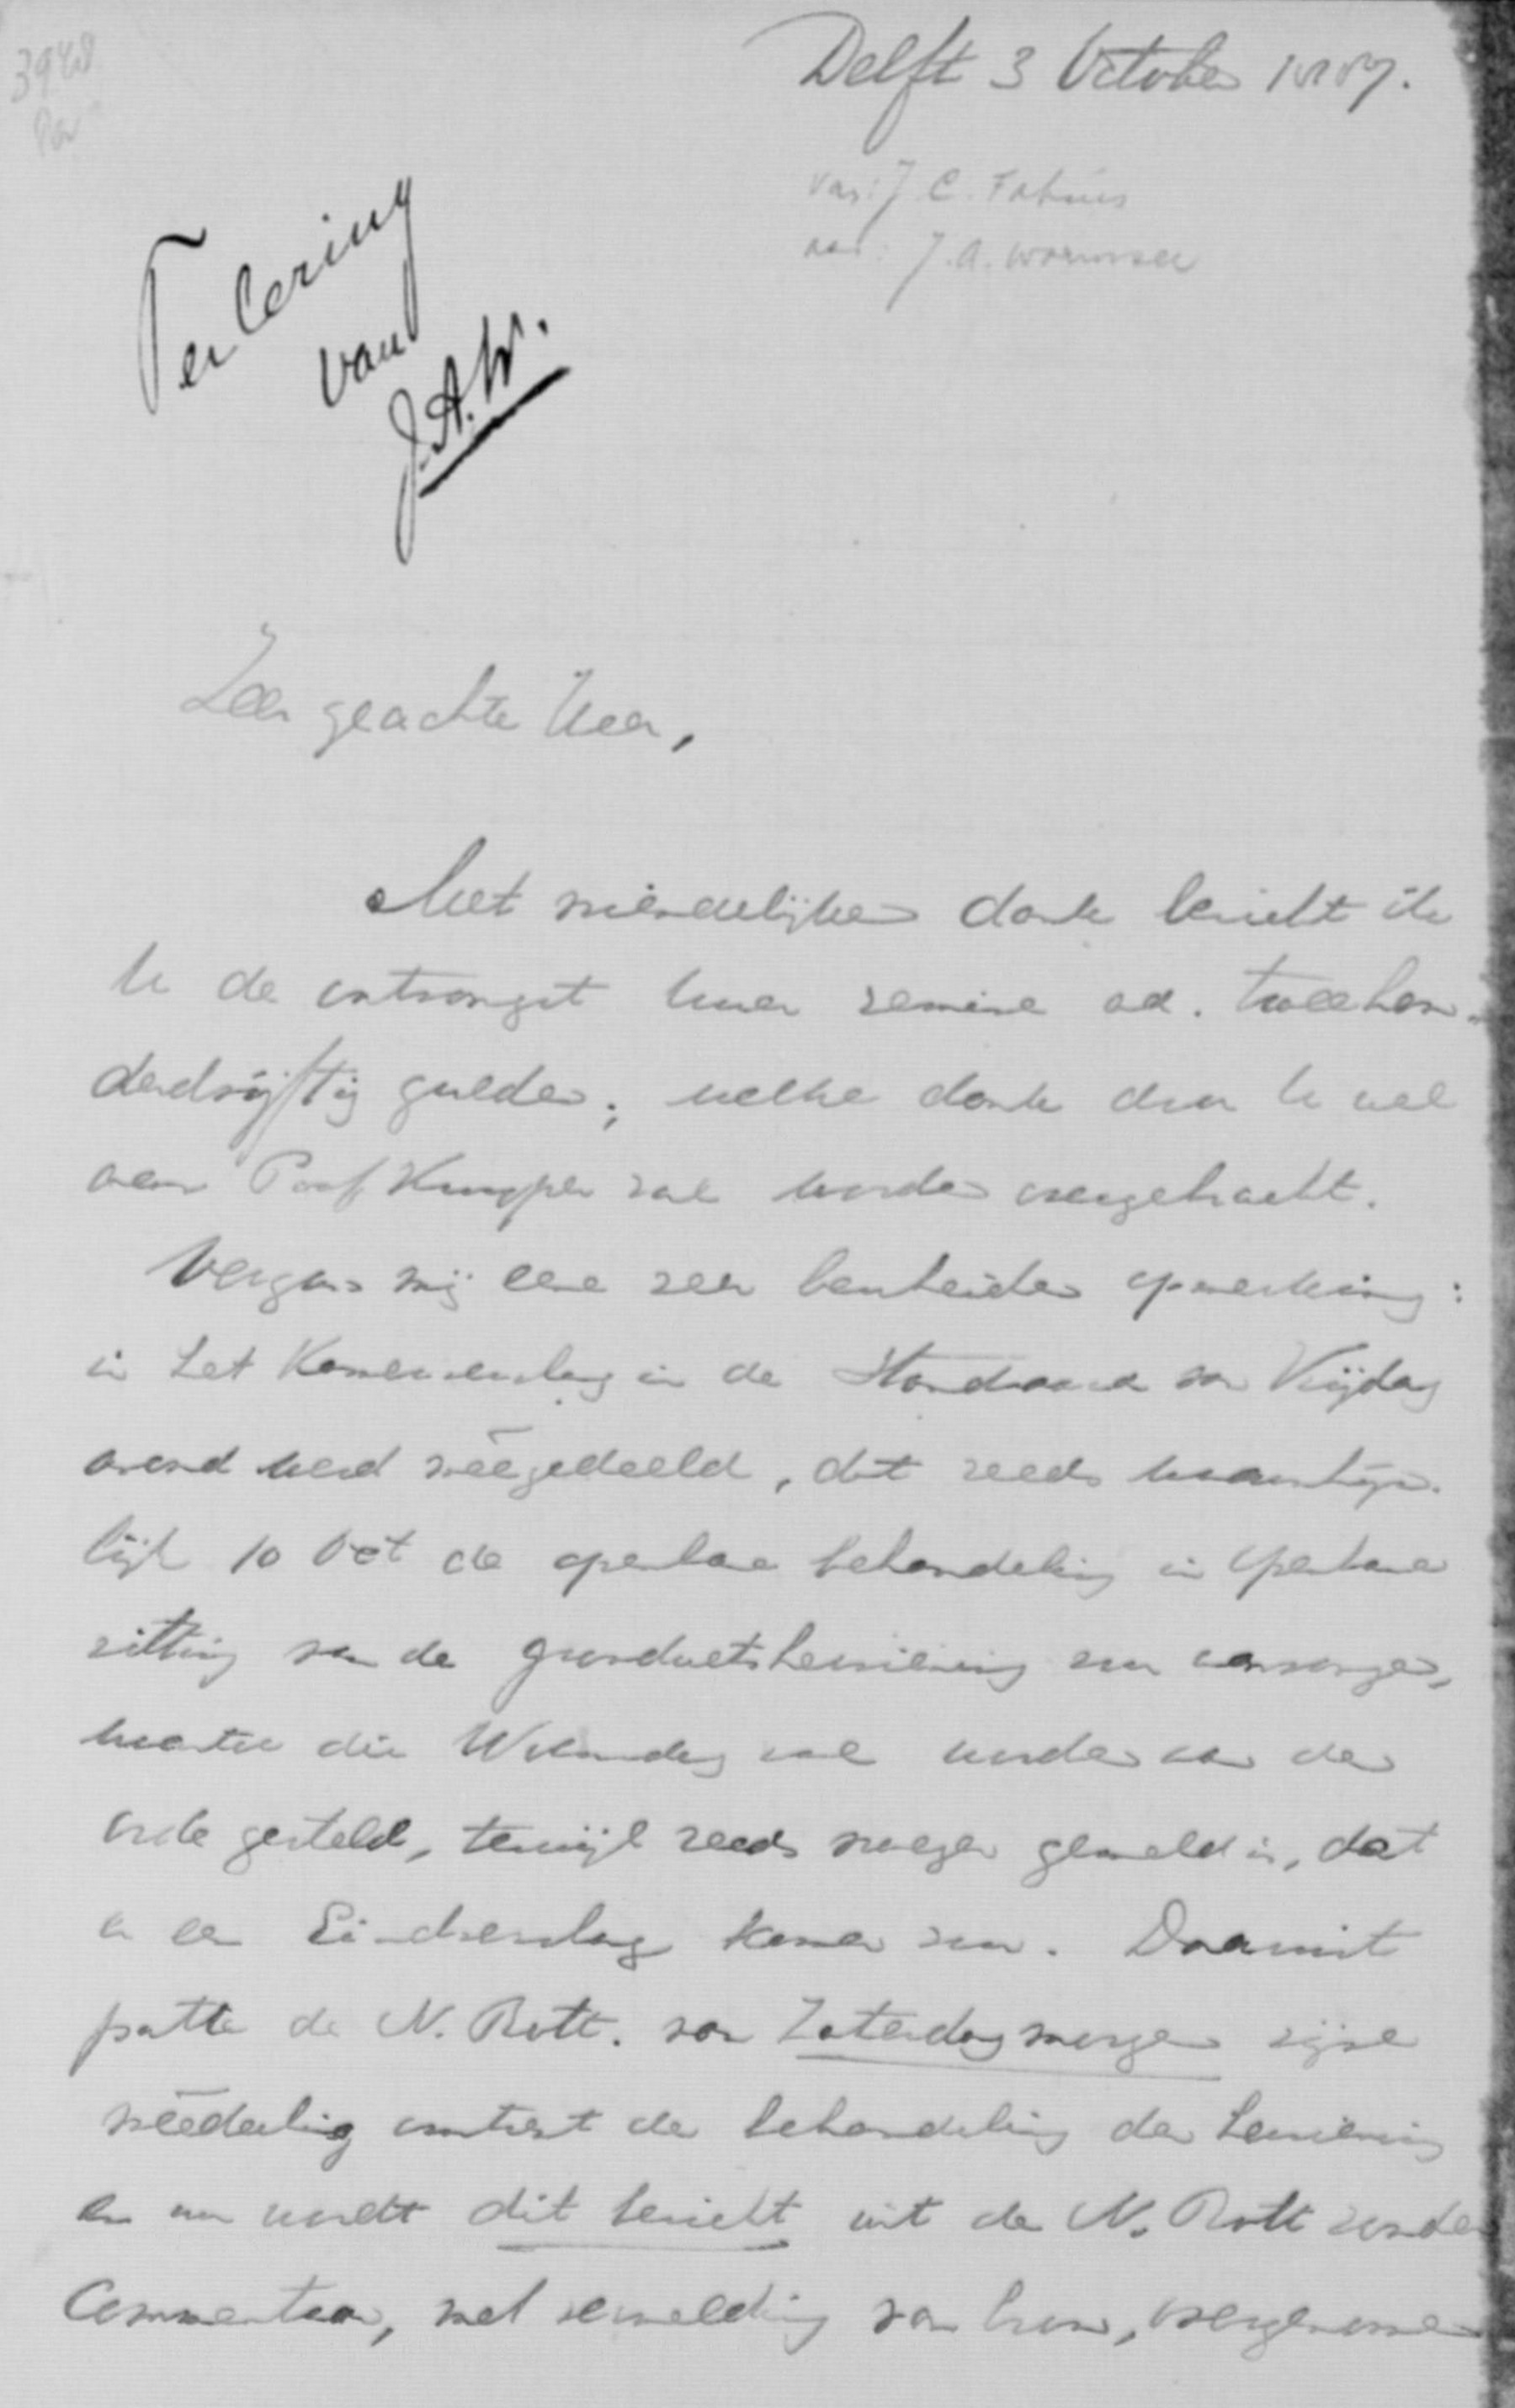 3948
Delft 3 October 1887.
van: J. C. Fabius
aan: J. A. Wormser
Ter lering
van
J. A. W.
Zeer geachte Heer,
Met vriendelijken dank bericht ik
U de ontvangst Uwer remise ad. tweehon-
derdvijftig gulden; welke dank door U wel
aan Prof Kuyper zal worden overgebracht.
Vergun mij eene zeer bescheiden opmerking:
in het Kamerverslag in de Standaard van Vrijdag
avond werd meêgedeeld, dat reeds waarschijn-
lijk 10 Oct de openbare behandeling in openbare
zitting van de grondwetsherziening zou aanvangen,
die Woensdag zal worden aan de
orde gesteld, terwijl reeds vroeger gemeld is, dat
er een Eindverslag komen zou. Daaruit
putte de N. Rott. van Zaterdagmorgen zijne
meêdeeling omtrent de behandeling der herziening
en nu wordt dit bericht uit de N. Rott zonder
Commentaar, met vermelding van bron, overgenomen